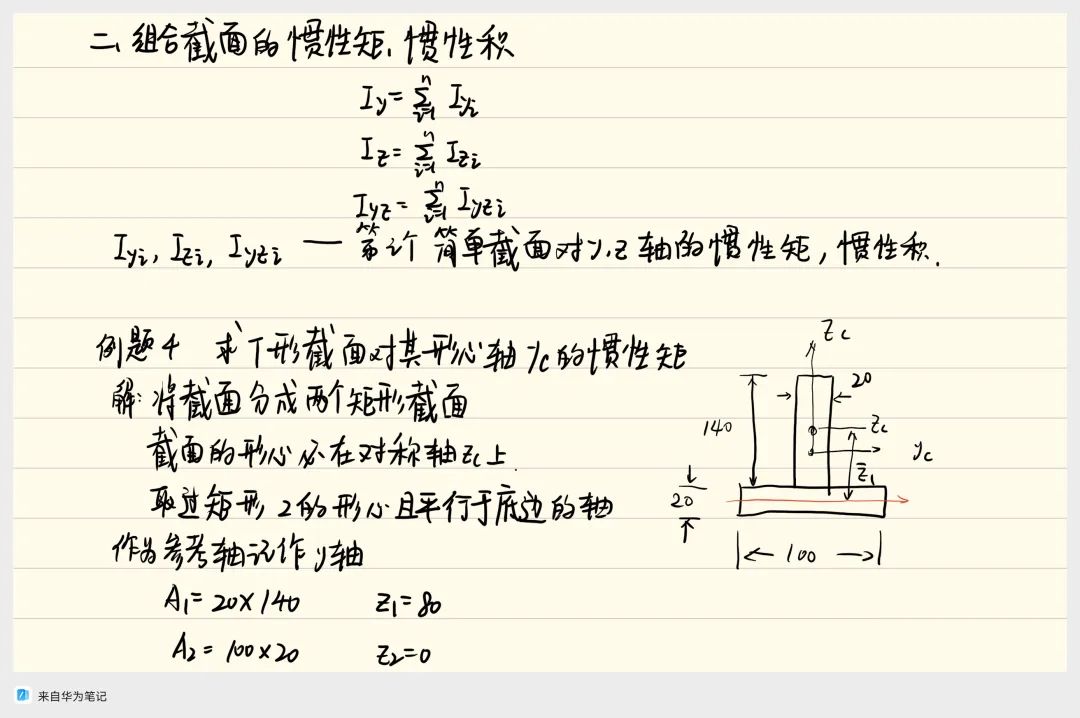 二、组合截面的惯性矩、惯性积
I_y = Σ_{i=1}^{n} I_{yi}
I_z = Σ_{i=1}^{n} I_{zi}
I_{yz} = Σ_{i=1}^{n} I_{yzi}
I_{yi}, I_{zi}, I_{yzi} — 第i个简单截面对y,z轴的惯性矩,惯性积.
例题4 求T形截面对其形心轴y_c的惯性矩
解: 将截面分成两个矩形截面
截面的形心必在对称轴z_c上.
取过矩形2的形心且平行于底边的轴
作为参考轴记作y轴
A_1=20×140 z_1=80
A_2=100×20 z_2=0
z_c
20
140
z_c
y_c
z̄_1
20
100
来自华为笔记